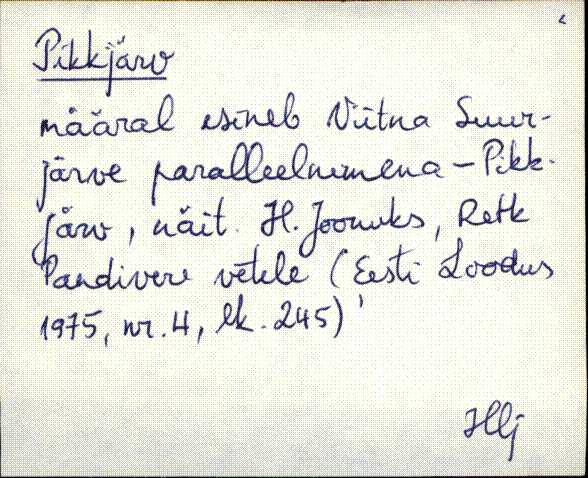 Pikkjärv
määral esineb Viitna Suur-
järve paralleelnimena – Pikk-
järv, näit. H. Joonuks, Retk
Pandivere vetele (Eesti Loodus
1975, nr. 4, lk. 245)'
Hlj